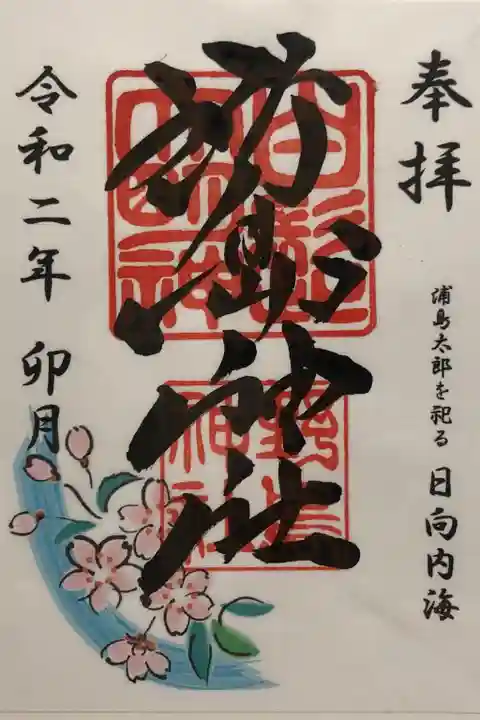 奉拝
浦島太郎を祀る 日向内海
野島神社
令和二年 卯月